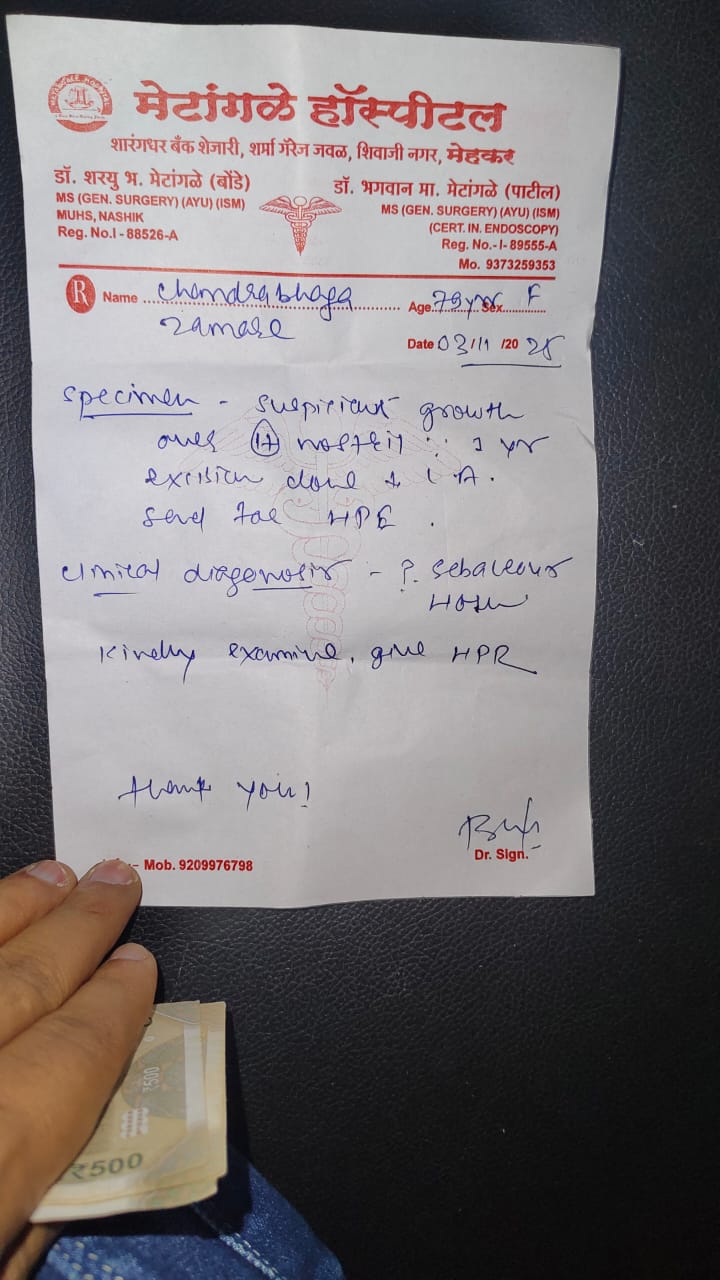 मेटांगळे हॉस्पीटल
शारंगधर बँक शेजारी, शर्मा गॅरेज जवळ, शिवाजी नगर, मेहकर
डॉ. शरयु भ. मेटांगळे (बोंडे)
MS (GEN. SURGERY) (AYU) (ISM)
MUHS, NASHIK
Reg. No.I - 88526-A
डॉ. भगवान मा. मेटांगळे (पाटील)
MS (GEN. SURGERY) (AYU) (ISM)
(CERT. IN. ENDOSCOPY)
Reg. No.-I- 89555-A
Mo. 9373259353
R Name Chandrabhaga
Age Sex F
Date 03/11/20 25
Specimen - growth
nostril 1 yr
excision done L A.
Send for HPE.
Clinical diagnosis - ?. Sebaceous
Kindly examine, give HPR
Thank you!
Dr. Sign.
Mob. 9209976798
₹500
₹500